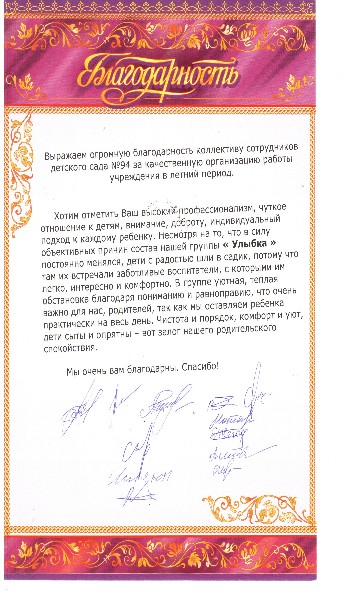 Благодарность
Выражаем огромную благодарность коллективу сотрудников
детского сада №94 за качественную организацию работы
учреждения в летний период.
Хотим отметить Ваш высокий профессионализм, чуткое
отношение к детям, внимание, доброту, индивидуальный
подход к каждому ребенку. Несмотря на то, что в силу
объективных причин состав нашей группы « Улыбка »
постоянно менялся, дети с радостью шли в садик, потому что
там их встречали заботливые воспитатели, с которыми им
легко, интересно и комфортно. В группе уютная, теплая
обстановка благодаря пониманию и равноправию, что очень
важно для нас, родителей, так как мы оставляем ребенка
практически на весь день. Чистота и порядок, комфорт и уют,
дети сыты и опрятны – вот залог нашего родительского
спокойствия.
Мы очень вам благодарны. Спасибо!